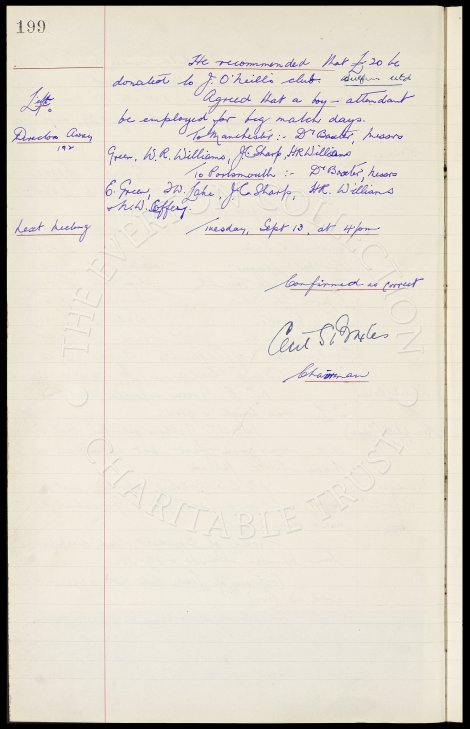 199
He recommended that £20 be
donated to J. O'Neill's club.
Lift.
Agreed that a boy - attendant
be employed for big match days.
Directors Away
To Manchester :- Dr Baxter, Messrs
Green, W.R. Williams, J.C. Sharp, H.R. Williams
To Portsmouth :- Dr Baxter, Messrs
C. Green, J.C. Sharp, H.R. Williams
+ N.W. Coffey.
Next Meeting
Tuesday, Sept 13, at 4pm
Confirmed as correct
Chairman
© THE EVERTON COLLECTION
CHARITABLE TRUST ©